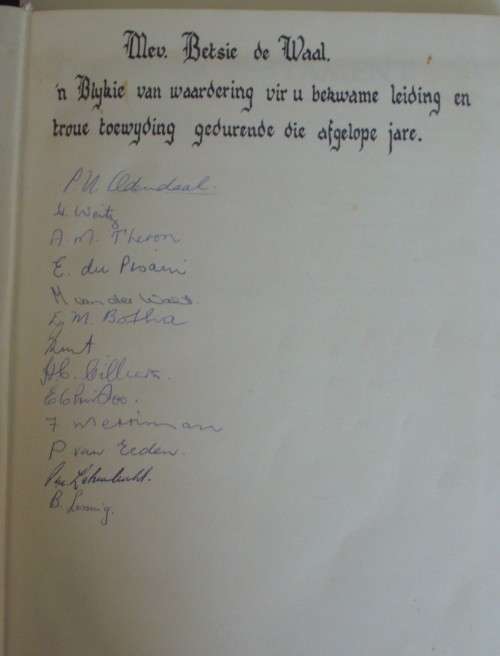 Mev. Betsie de Waal.
'n Blykie van waardering vir u bekwame leiding en
troue toewyding gedurende die afgelope jare.
P.U. Odendaal.
H. Weitz
A. M. Theron
E. du Pisani
M van der Waal.
M. Botha
Cilliers.
J Merriman
P van Eeden.
B.